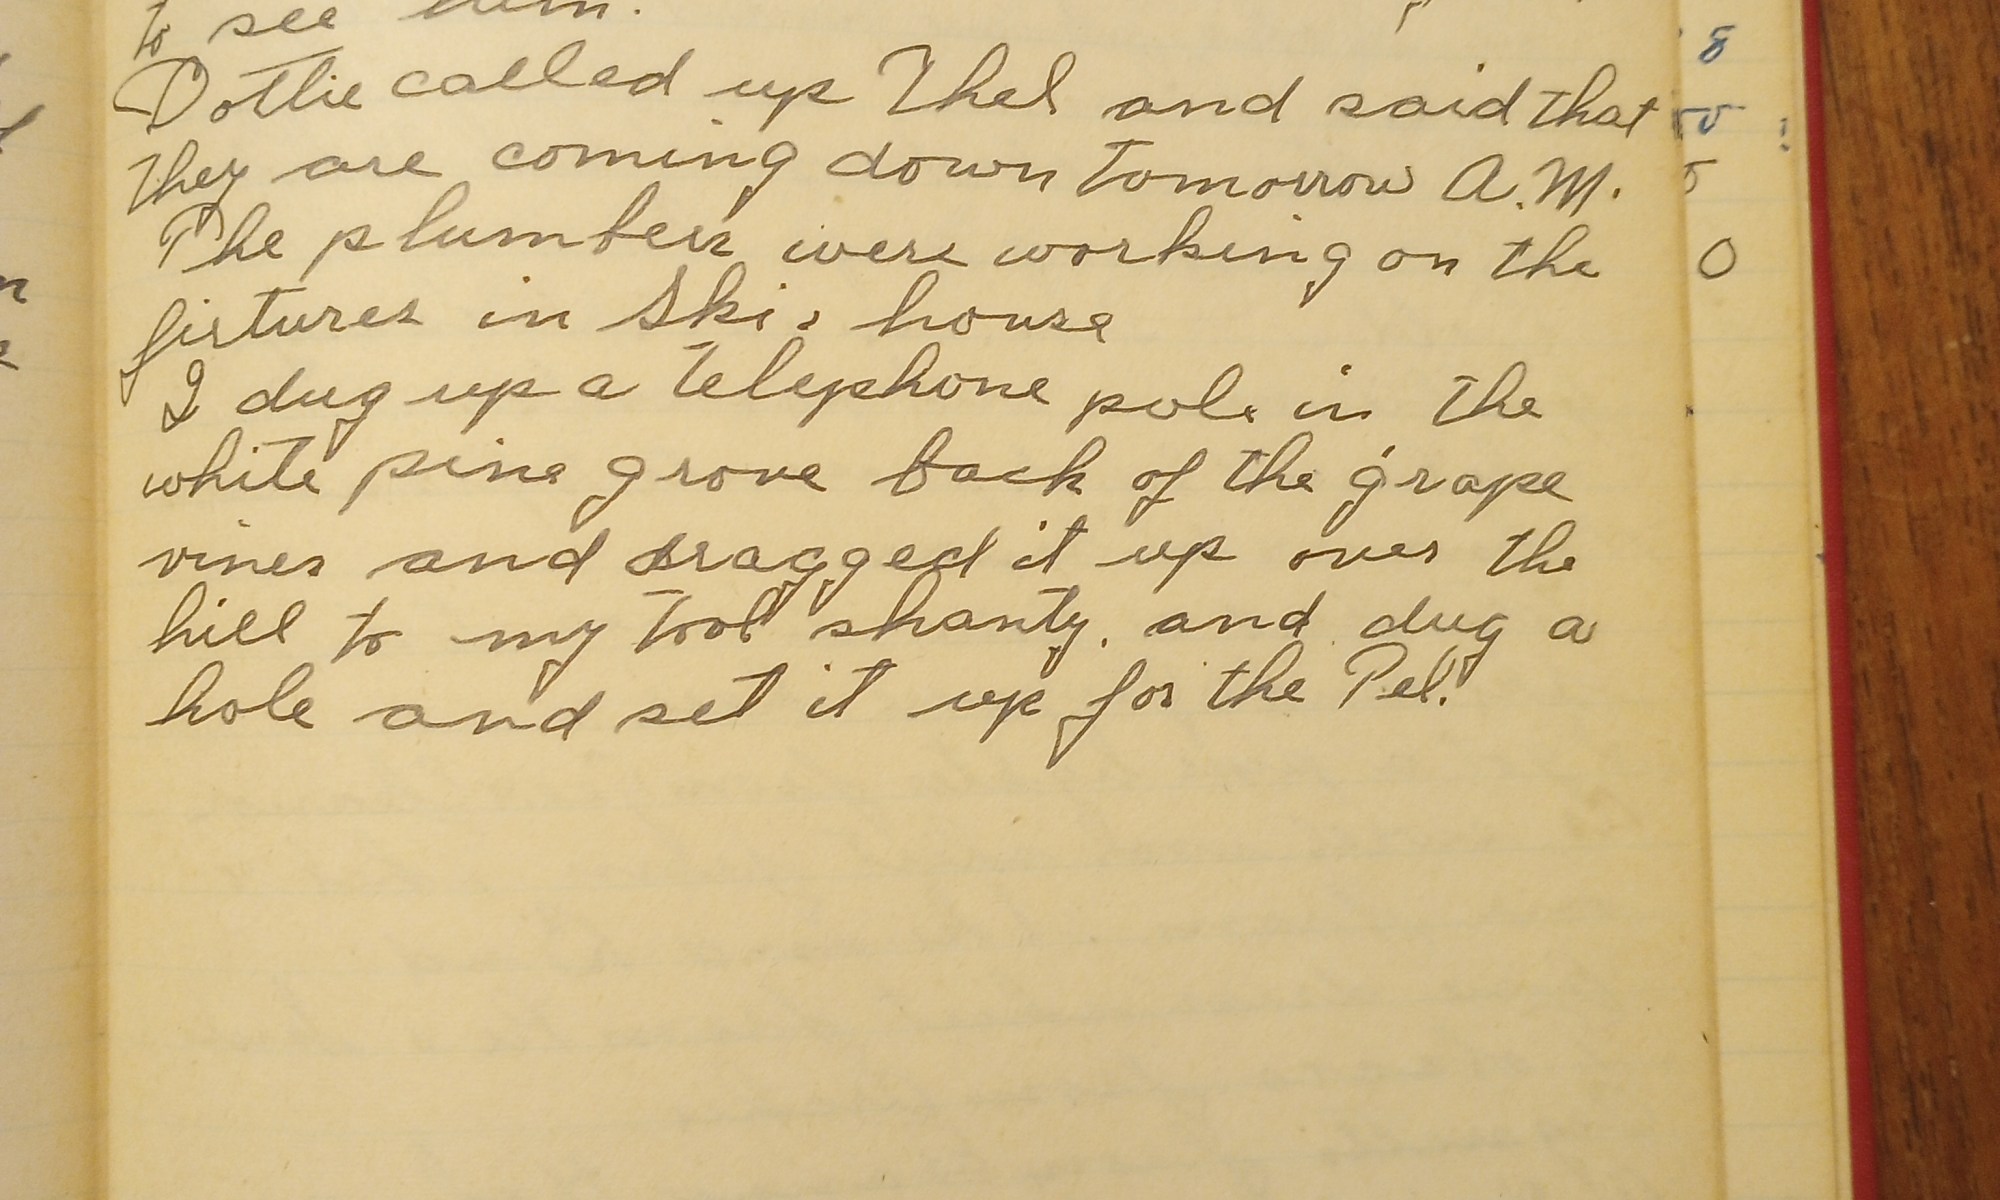 to see them.
Dottie called up Thel and said that
they are coming down tomorrow A.M.
The plumbers were working on the
fixtures in Ski's house
I dug up a telephone pole in the
white pine grove back of the grape
vines and dragged it up over the
hill to my tool shanty, and dug a
hole and set it up for the Tel.
8
0